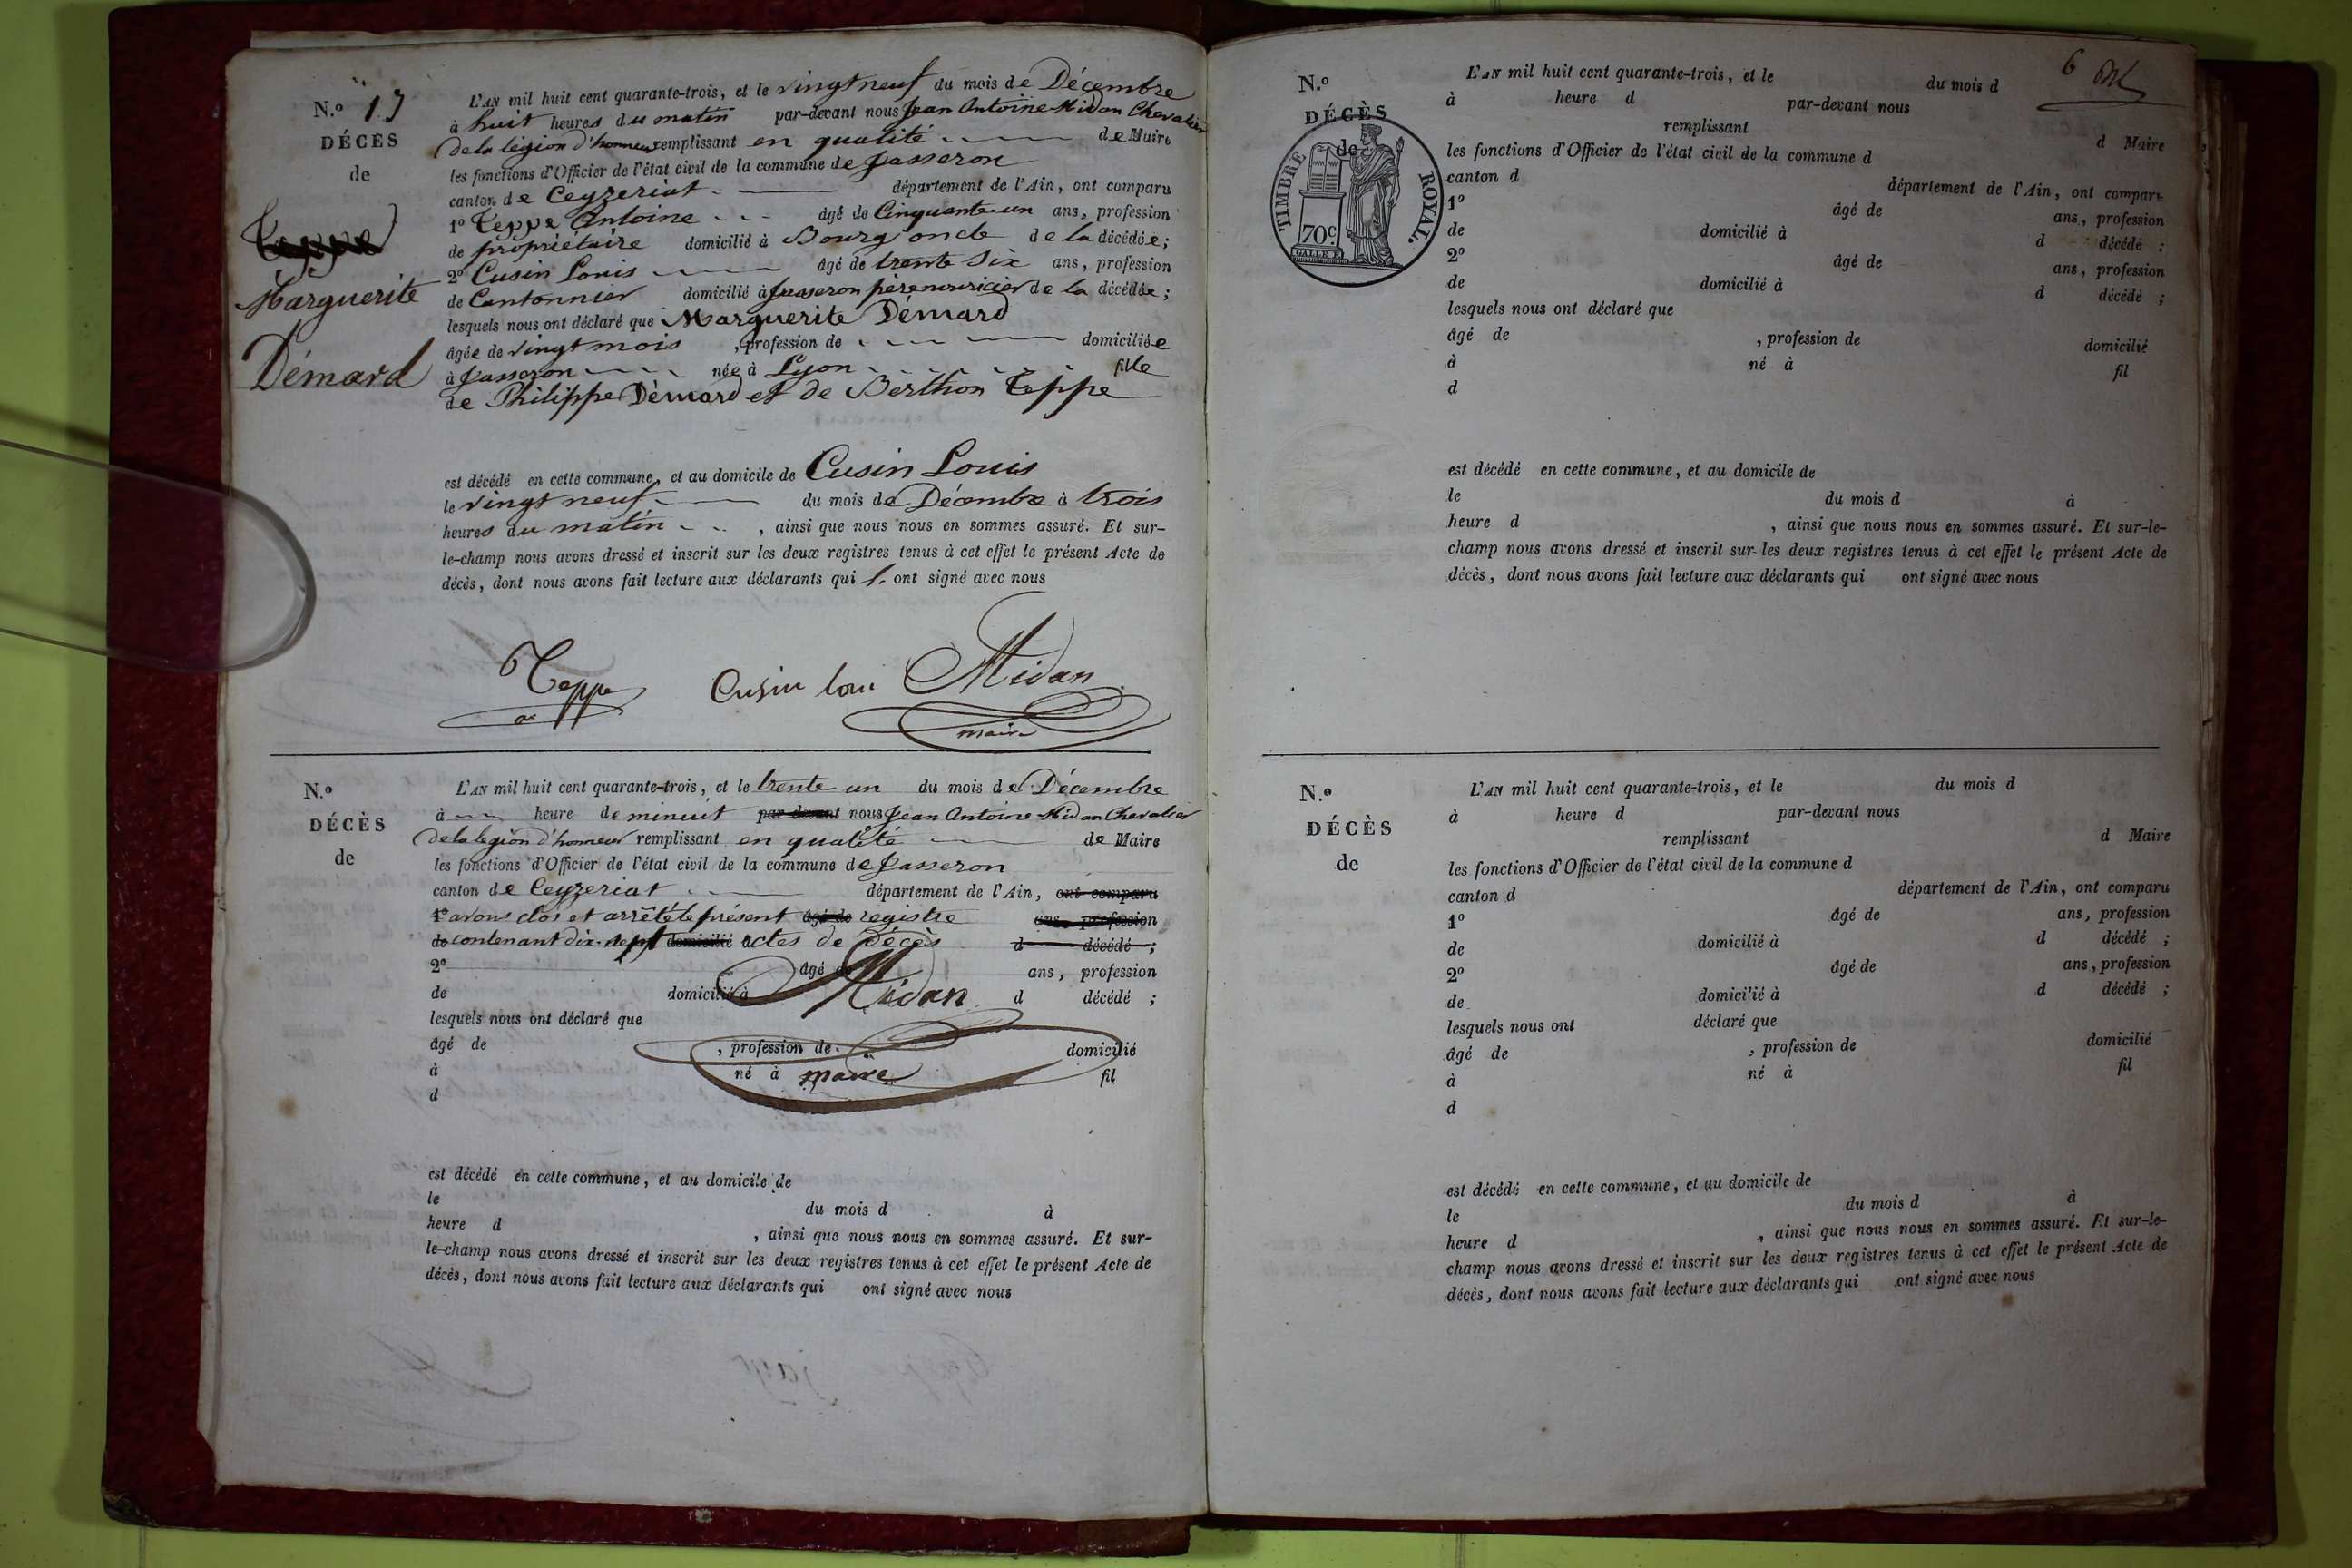 N.o 17
DÉCÈS
de
Teppe
Marguerite
Démard
L'AN mil huit cent quarante-trois, et le vingt neuf du mois de Décembre
à huit heures du matin par-devant nous Jean Antoine Midan Chevalier
de la légion d'honneur remplissant en qualité de Maire
les fonctions d'Officier de l'état civil de la commune de Jasseron
canton de Ceyzeriat département de l'Ain, ont comparu
1o Teppe Antoine âgé de Cinquante un ans, profession
de propriétaire domicilié à Bourg oncle de la décédée;
2o Cusin Louis âgé de trente six ans, profession
de Cantonnier domicilié à Jasseron père nouricier de la décédée;
lesquels nous ont déclaré que Marguerite Démard
âgée de vingt mois , profession de domiciliée
à Jasseron née à Lyon fille
de Philippe Démard et de Berthon Teppe
est décédé en cette commune, et au domicile de Cusin Louis
le vingt neuf du mois de Décembre à trois
heures du matin , ainsi que nous nous en sommes assuré. Et sur-
le-champ nous avons dressé et inscrit sur les deux registres tenus à cet effet le présent Acte de
décès, dont nous avons fait lecture aux déclarants qui l' ont signé avec nous
Teppe Cusin loui Midan
maire
N.o
DÉCÈS
de
L'AN mil huit cent quarante-trois, et le trente un du mois de Décembre
à heure de minuit par-devant nous Jean Antoine Midan Chevalier
de la légion d'honneur remplissant en qualité de Maire
les fonctions d'Officier de l'état civil de la commune de Jasseron
canton de Ceyzeriat département de l'Ain, ont comparu
1o avons clos et arrêté le présent âgé de registre ans, profession
de contenant dix-sept domicilié actes de décès d décédé ;
2o âgé de ans, profession
de domicilié à Midan d décédé ;
lesquels nous ont déclaré que
âgé de , profession de domicilié
à né à maire fil
d
est décédé en cette commune, et au domicile de
le du mois d à
heure d , ainsi que nous nous en sommes assuré. Et sur-
le-champ nous avons dressé et inscrit sur les deux registres tenus à cet effet le présent Acte de
décès, dont nous avons fait lecture aux déclarants qui ont signé avec nous
6
N.o
DÉCÈS
de
TIMBRE ROYAL.
70c.
L'AN mil huit cent quarante-trois, et le du mois d
à heure d par-devant nous
remplissant d Maire
les fonctions d'Officier de l'état civil de la commune d
canton d département de l'Ain, ont comparu
1o âgé de ans, profession
de domicilié à d décédé ;
2o âgé de ans, profession
de domicilié à d décédé ;
lesquels nous ont déclaré que
âgé de , profession de domicilié
à né à fil
d
est décédé en cette commune, et au domicile de
le du mois d à
heure d , ainsi que nous nous en sommes assuré. Et sur-le-
champ nous avons dressé et inscrit sur les deux registres tenus à cet effet le présent Acte de
décès, dont nous avons fait lecture aux déclarants qui ont signé avec nous
N.o
DÉCÈS
de
L'AN mil huit cent quarante-trois, et le du mois d
à heure d par-devant nous
remplissant d Maire
les fonctions d'Officier de l'état civil de la commune d
canton d département de l'Ain, ont comparu
1o âgé de ans, profession
de domicilié à d décédé ;
2o âgé de ans, profession
de domicilié à d décédé ;
lesquels nous ont déclaré que
âgé de , profession de domicilié
à né à fil
d
est décédé en cette commune, et au domicile de
le du mois d à
heure d , ainsi que nous nous en sommes assuré. Et sur-le-
champ nous avons dressé et inscrit sur les deux registres tenus à cet effet le présent Acte de
décès, dont nous avons fait lecture aux déclarants qui ont signé avec nous